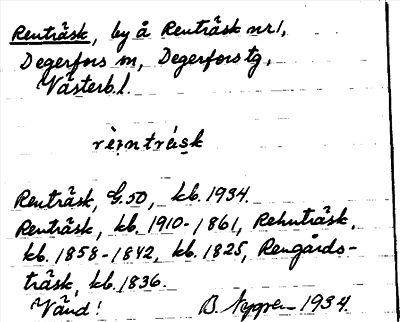 Renträsk, by å Renträsk nr 1,
Degerfors sn, Degerfors tg,
Västerb. l.
rèi̯ntrásk
Renträsk, G.50, kb. 1934.
Renträsk, kb. 1910-1861, Rehnträsk,
kb. 1858-1842, kb. 1825, Rengårds-
träsk, kb. 1836.
Vänd! B. Nygren 1934.